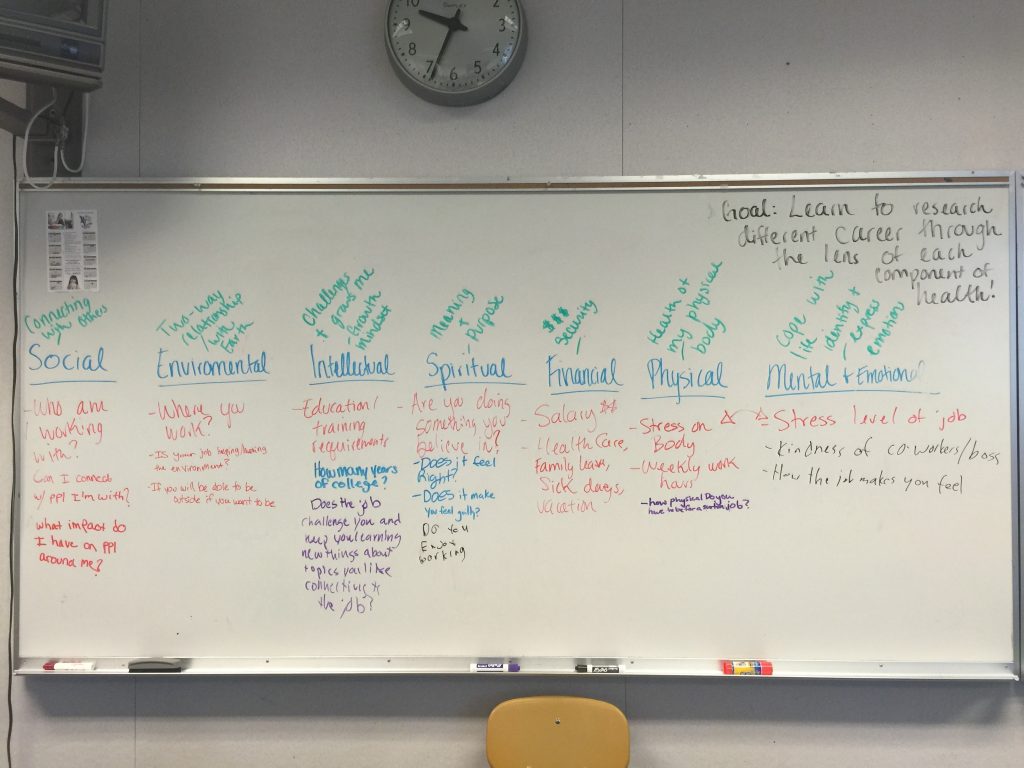 10
2
9
3
8
4
7
6
5
Goal: Learn to research
different career through
the lens of each
component of
health!
Connecting
with others
Social
-Who am
I working
with?
Can I connect
w/ ppl I'm with?
what impact do
I have on ppl
around me?
Two-way
relationship
with
Earth
Enviromental
-Where you
work?
-Is your job
the environment?
-If you will be able to be
outside if you want to be
Challenges
+ grows me
- Growth
mindset
Intellectual
-Education/
training
requirements
How many years
of college?
Does the job
challenge you and
keep you learning
new things about
topics you like
connecting to
the job?
Meaning
+
Purpose
Spiritual
-Are you doing
something you
believe in?
-Does it feel
Right?
-Does it make
you feel guilty?
Do you
Enjoy
working
$$$
Security
Financial
-Salary $$
-Health Care,
Family leave,
Sick days,
vacation
Health of
my physical
body
Physical
-Stress on
Body
-Weekly work
hours
-how physical Do you
have to be for a certain job?
Cope with
life
identity +
express
emotion
Mental + Emotional
Stress level of job
-Kindness of co-workers/boss
-How the job makes you feel